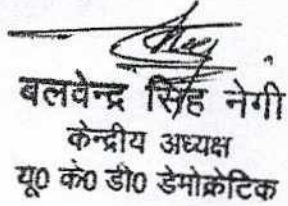 बलवेन्द्र सिंह नेगी
केन्द्रीय अध्यक्ष
यू0 के0 डी0 डेमोक्रेटिक